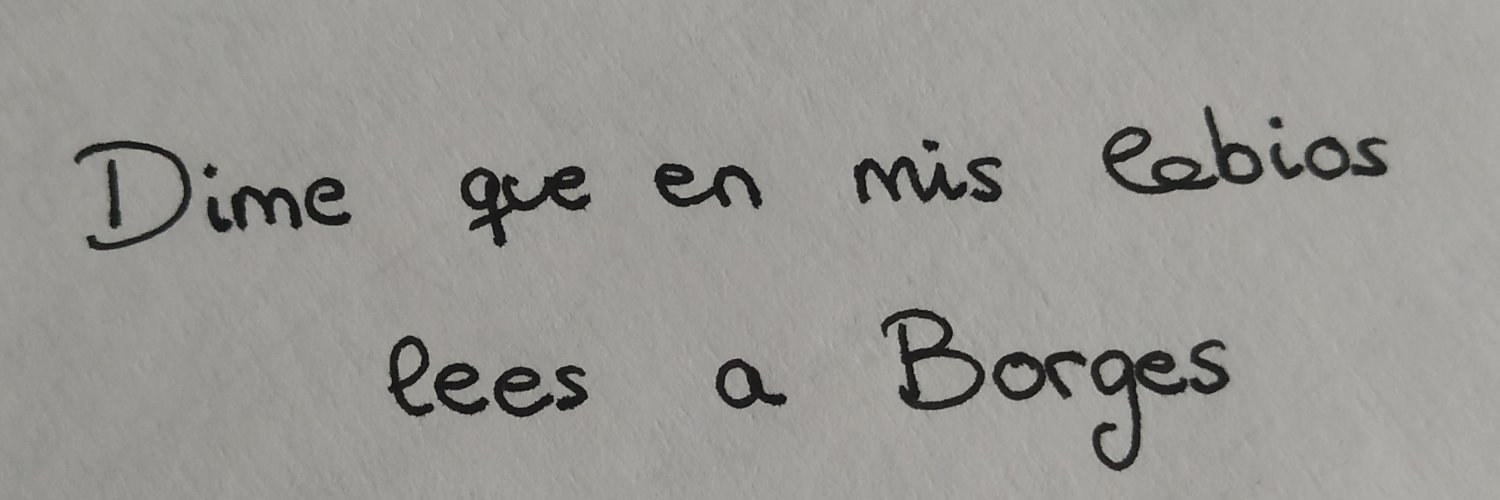 Dime que en mis labios
lees a Borges